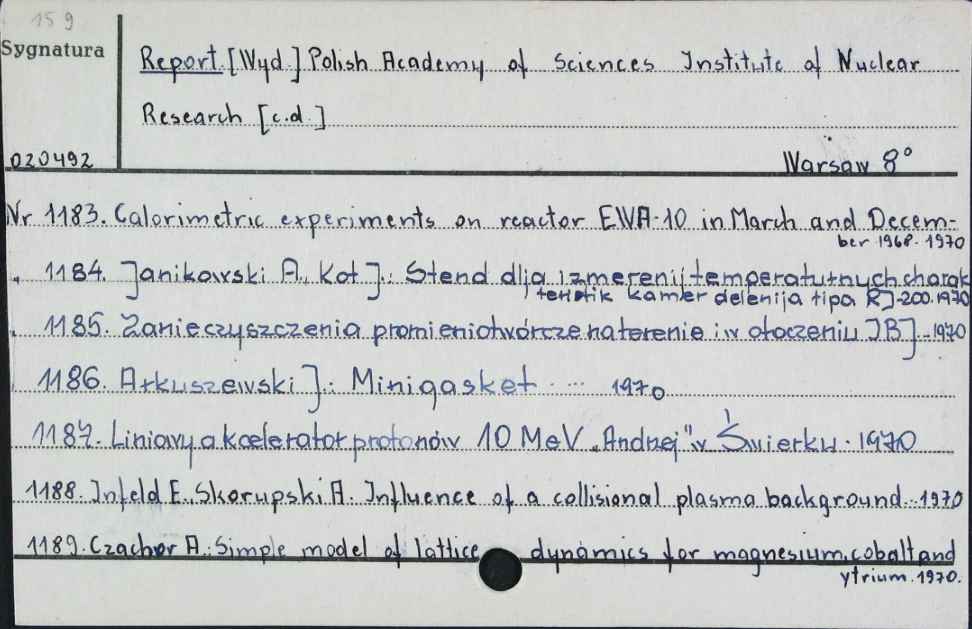 159
Sygnatura
Report [Wyd.] Polish Academy of Sciences Institute of Nuclear
Research [c.d.]
020492
Warsaw 8°
Nr 1183. Calorimetric experiments on reactor EWA-10 in March and Decem-
ber 1968. 1970
1184. Janikowski A., Kot J.: Stend dlja izmerenij temperaturnych charak
teristik kamer delenija tipa RJ-200. 1970
1185. Zanieczyszczenia promieniotwórcze na terenie i w otoczeniu JBJ. 1970
1186. Arkuszewski J.: Minigasket ... 1970
1187. Liniowy akcelerator protonów 10 MeV „Andrzej" w Świerku. 1970
1188. Infeld E., Skorupski A. Influence of a collisional plasma background. 1970
1189. Czachor A.: Simple model of lattice dynamics for magnesium, cobalt and
ytrium. 1970.